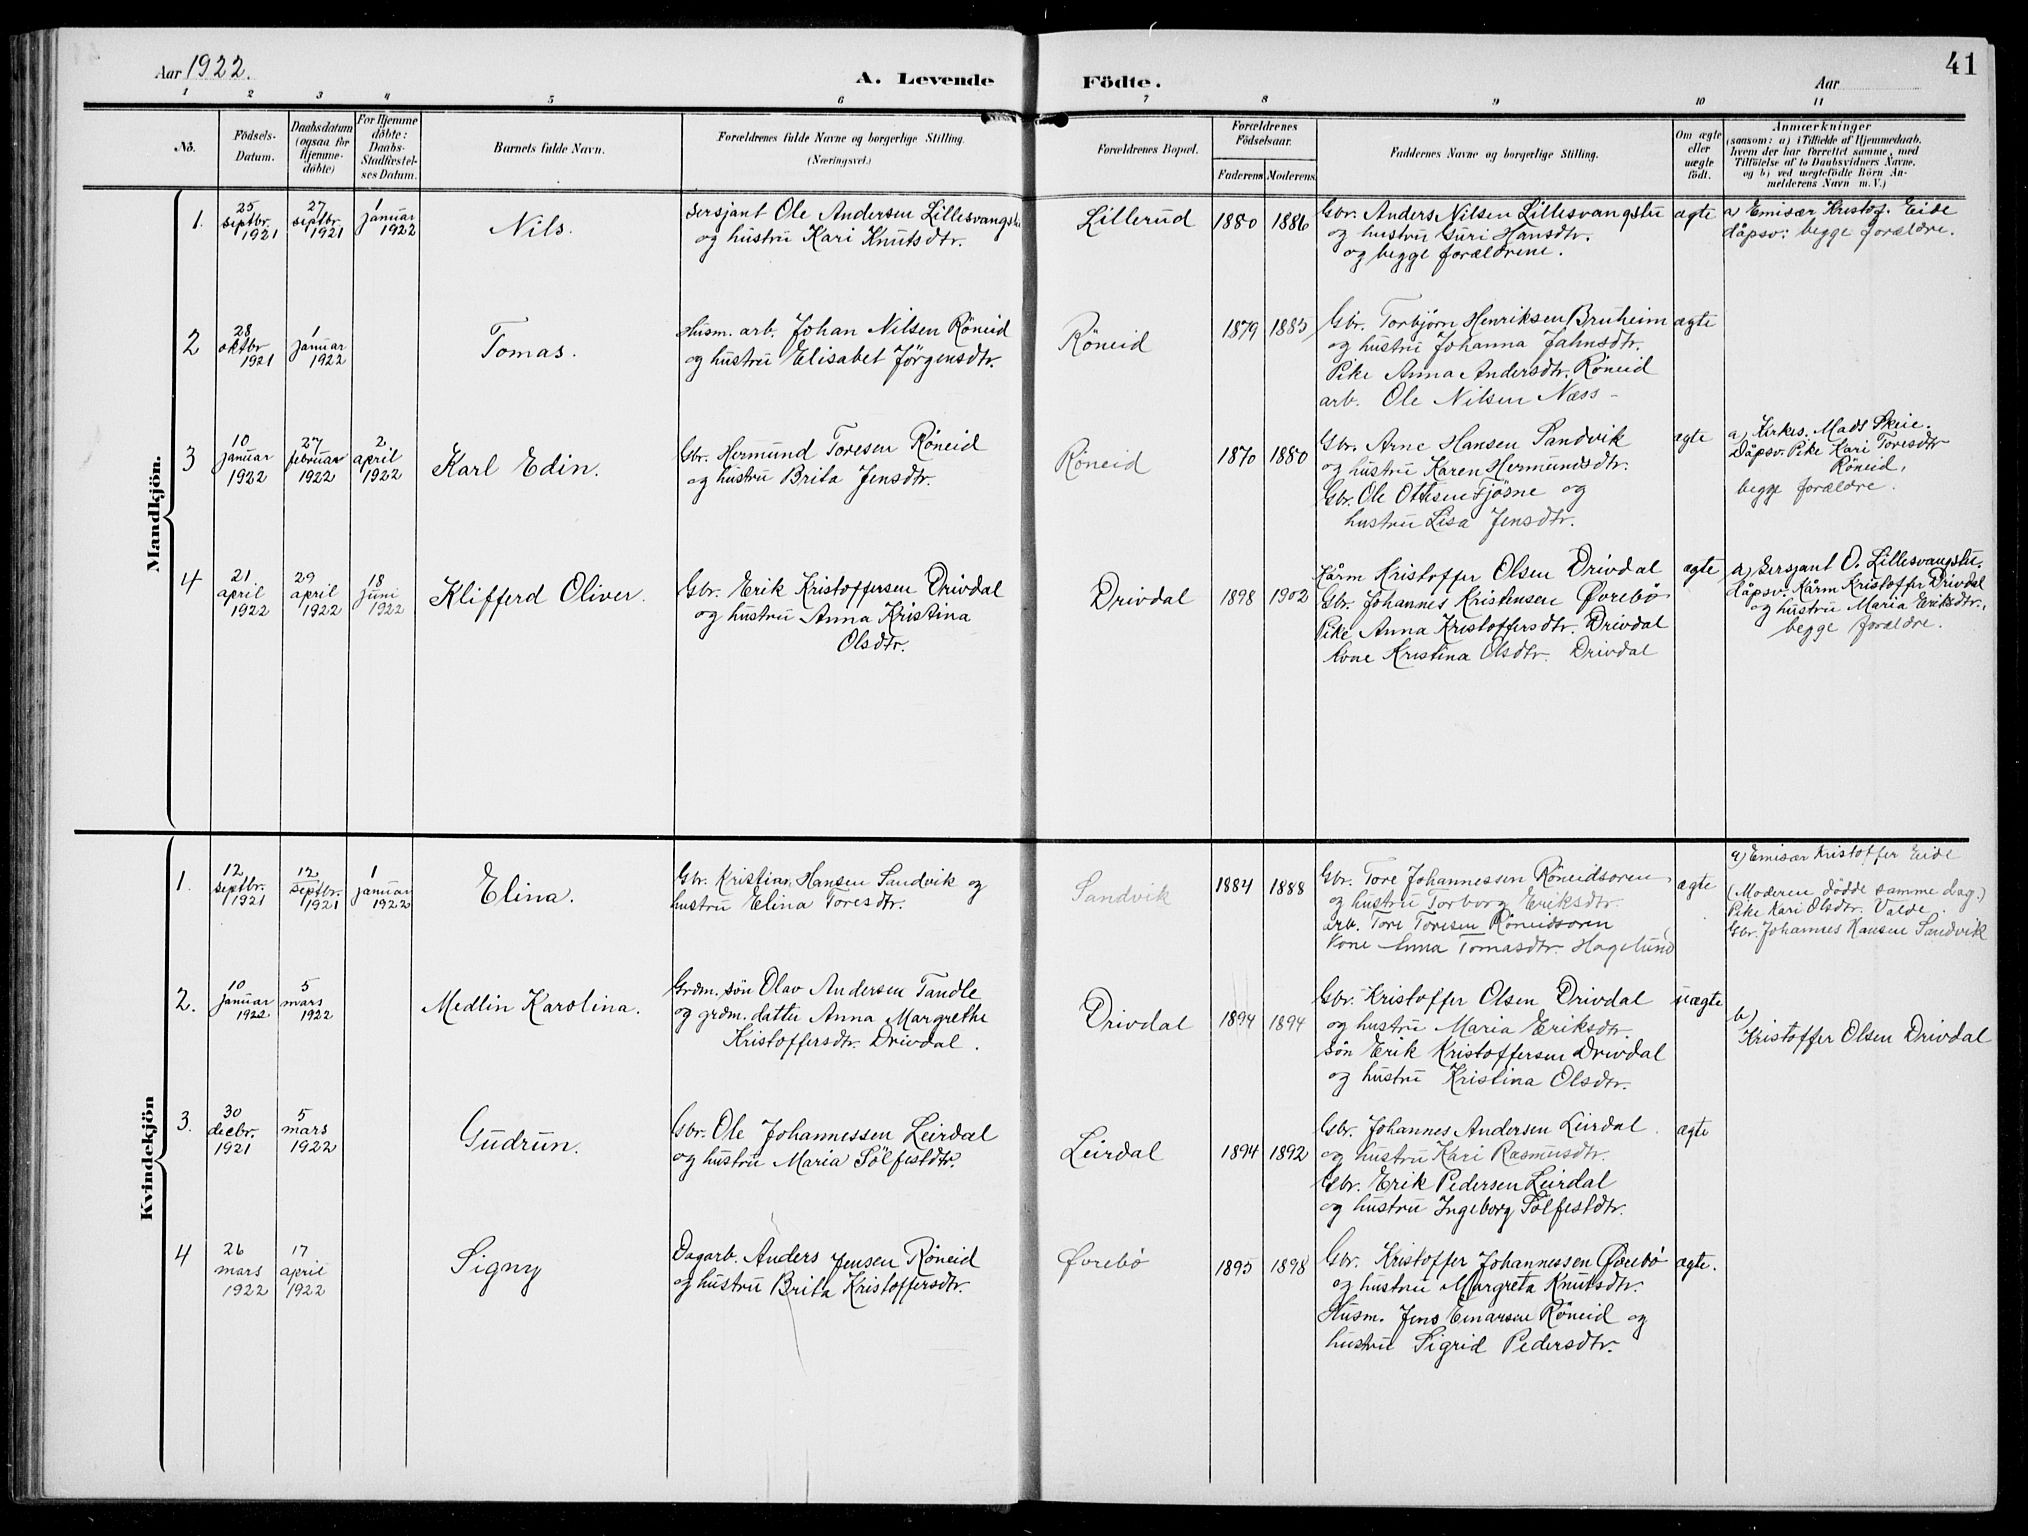 Aar 1922.
A. Levende Födte.
Aar
41
1 2 3 4 5 6 7 8 9 10 11
No.
Födsels-
Datum.
Daabsdatum
(ogsaa for
Hjemme-
döbte)
For Hjemme
döbte:
Daabs-
Stadfæstel-
ses Datum.
Barnets fulde Navn.
Forældrenes fulde Navne og borgerlige Stilling.
(Næringsvei.)
Forældrenes Bopæl.
Forældrenes
Födselsaar.
Faderens Moderens
Faddernes Navne og borgerlige Stilling.
Om ægte
eller
uægte
födt.
Anmærkninger
(saasom: a) i Tilfælde af Hjemmedaab,
hvem der har forrettet samme, med
Tilföielse af to Daabsvidners Navne,
og b) ved uægtefödte Börn An-
melderens Navn m. V.)
Mandkjön.
1.
25
septbr.
1921
27
septbr.
1921
1
januar
1922
Nils.
Sersjant Ole Andersen Lillesvangstu
og hustru Kari Knutsdtr.
Lillerud
1880
1886
Gbr. Anders Nilsen Lillesvangstu
og hustru Guri Hansdtr.
og begge forældrene.
ægte
a Emisær Kristof. Eide
dåpsv: begge forældre.
2
28
oktbr.
1921
1
januar
1922
Tomas.
Husm. arb. Johan Nilsen Röneid
og hustru Elisabet Jørgensdtr.
Röneid
1879
1885
Gbr. Torbjörn Henriksen Bruheim
og hustru Johanna Jahnsdtr.
Pike Anna Andersdtr. Röneid
arb. Ole Nilsen Næss -
ægte
3
10
januar
1922
27
februar
1922
2
april
1922
Karl Edin.
Gbr. Hermund Toresen Röneid
og hustru Brita Jensdtr.
Röneid
1870
1880
Gbr. Arne Hansen Sandvik
og hustru Karen Hermundsdtr.
Gbr. Ole Ottesen Fjøsne og
hustru Lisa Jensdtr.
ægte
a) Kirkes. Mads Skeie.
Dåpsv. Pike Kari Toresdtr
Röneid,
begge forældre.
4
21
april
1922
29
april
1922
18
juni
1922
Klifferd Oliver.
Gbr. Erik Kristoffersen Drivdal
og hustru Anna Kristina
Olsdtr.
Drivdal
1898
1902
Kårm Kristoffer Olsen Drivdal
Gbr. Johannes Kristensen Øvrebø
Pike Anna Kristoffersdtr. Drivdal
Kone Kristina Olsdtr. Drivdal
ægte
a) Sersjant O. Lillesvangstu.
dåpsv. Kårm Kristoffer Drivdal
og hustru Maria Eriksdtr.,
begge forældre.
Kvindekjön
1.
12
septbr.
1921
12
septbr.
1921
1
januar
1922
Elina.
Gbr. Kristian Hansen Sandvik og
hustru Elina Toresdtr.
Sandvik
1884
1888
Gbr. Tore Johannessen Röneidsoren
og hustru Torborg Eriksdtr.
arb. Tore Toresen Röneidsoren
Kone Anna Tomasdtr. Hagelund
ægte
a) Emisær Kristoffer Eide
(Moderen dödde samme dag.)
Pike Kari Olsdtr. Valde.
Gbr. Johannes Hansen Sandvik
2.
10
januar
1922
5
mars
1922
Medlin Karolina.
Grdm. sön Olav Andersen Tandle
og grdm. datter Anna Margrethe
Kristoffersdtr. Drivdal.
Drivdal
1894
1894
Gbr. Kristoffer Olsen Drivdal
og hustru Maria Eriksdtr.
sön Erik Kristoffersen Drivdal
og hustru Kristina Olsdtr.
uægte
b)
Kristoffer Olsen Drivdal
3.
30
decbr.
1921
5
mars
1922
Gudrun.
Gbr. Ole Johannessen Leirdal
og hustru Maria Sölfestdtr.
Leirdal
1894
1892
Gbr. Johannes Andersen Leirdal.
og hustru Kari Rasmusdtr.
Gbr. Erik Pedersen Leirdal
og hustru Ingeborg Sölfestdtr.
ægte
4
26
mars
1922
17
april
1922
Signy
Dagarb. Anders Jensen Röneid
og hustru Brita Kristoffersdtr.
Øvrebø
1895
1898
Gbr. Kristoffer Johannessen Øvrebø
og hustru Margreta Knutsdtr.
Husm. Jens Einarsen Röneid og
hustru Sigrid Pedersdtr.
ægte.